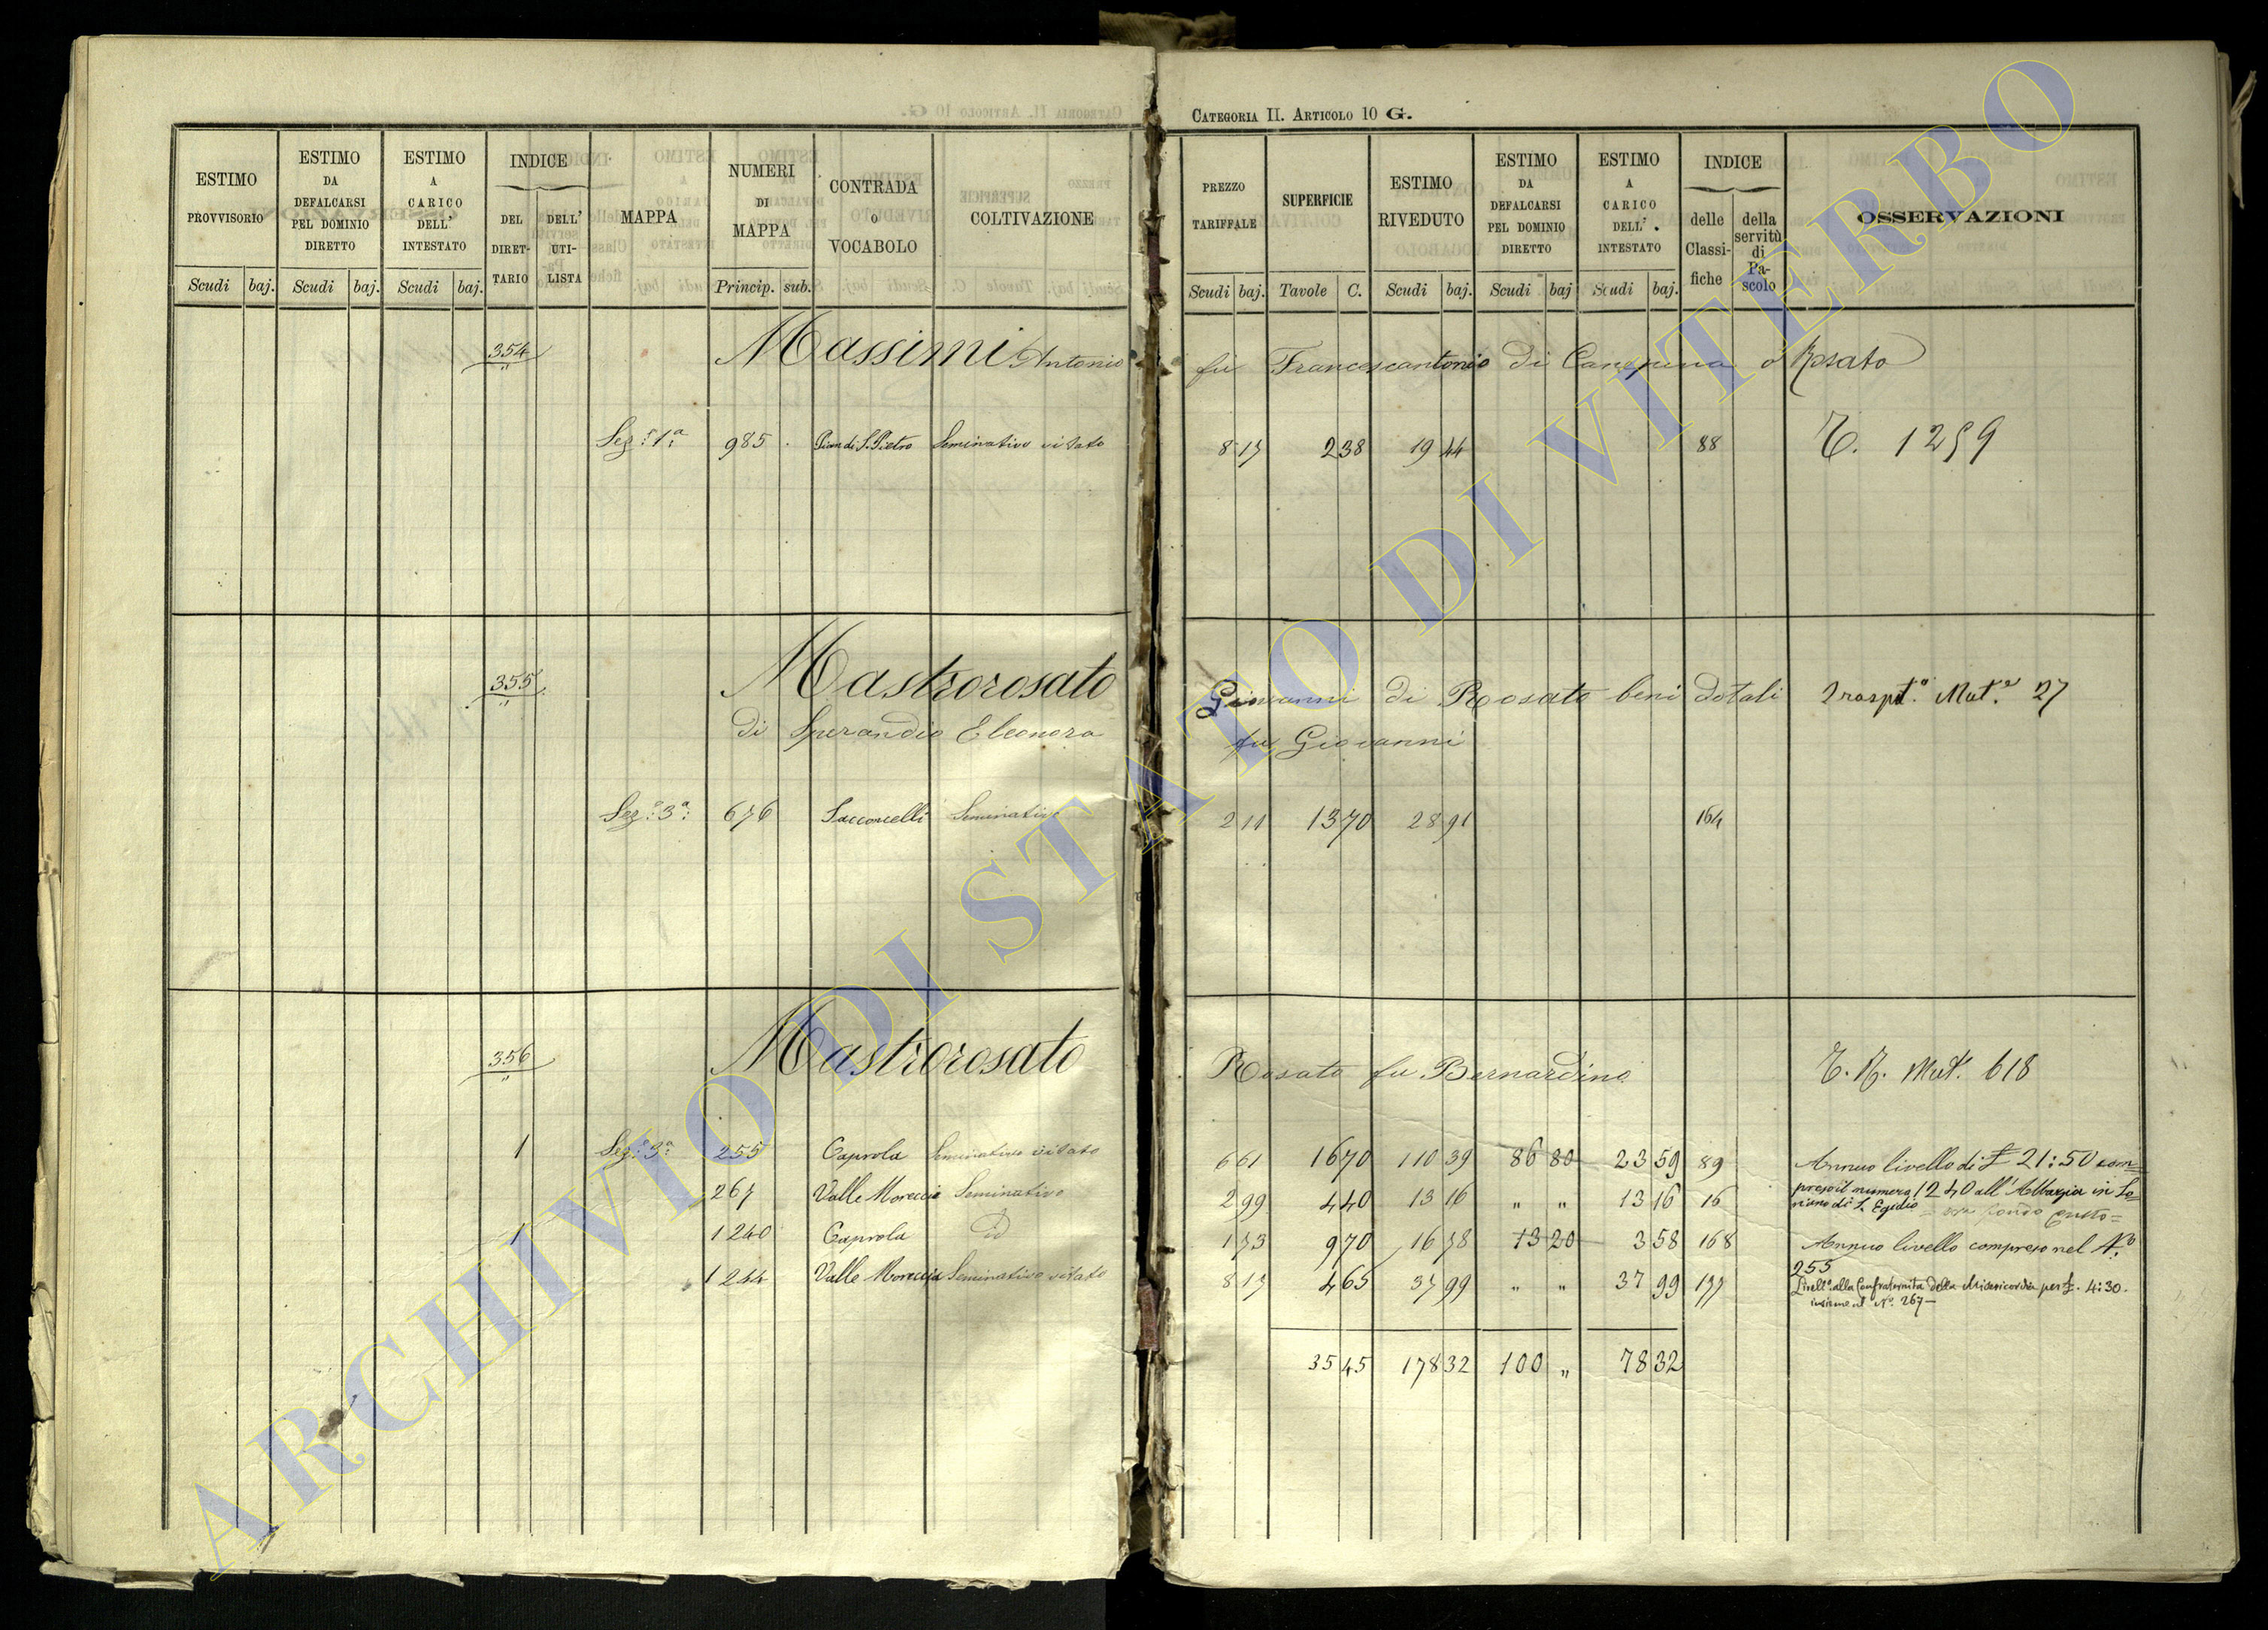 CATEGORIA II. ARTICOLO 10 G.
ESTIMO PROVVISORIO Scudi baj.
ESTIMO DA DEFALCARSI PEL DOMINIO DIRETTO Scudi baj.
ESTIMO A CARICO DELL' INTESTATO Scudi baj.
INDICE DEL DIRET-TARIO DELL' UTI-LISTA
MAPPA
NUMERI DI MAPPA Princip. sub.
CONTRADA O VOCABOLO
COLTIVAZIONE
PREZZO TARIFFALE Scudi baj.
SUPERFICIE Tavole C.
ESTIMO RIVEDUTO Scudi baj.
ESTIMO DA DEFALCARSI PEL DOMINIO DIRETTO Scudi baj
ESTIMO A CARICO DELL' INTESTATO Scudi baj.
INDICE delle Classi-fiche della servitù di Pa-scolo
OSSERVAZIONI
354 Massimi Antonio fu Francescantonio di Canepina o Rosato
Sez: 1ª 985 Pian di S. Pietro Seminativo vitato 8 17 2 38 19 44 88 T. 1259
355 Mastrorosato Giovanni di Rosato beni dotali Traspt.º Mut.ª 27
di Sperandio Eleonora fu Giovanni
Sez: 3ª 676 Sacconcelli Seminativo 2 11 13 70 28 91 164
356 Mastrorosato Rosato fu Bernardino T. R. Mut. 618
1 Sez: 3ª 255 Caprola Seminativo vitato 6 61 16 70 110 39 86 80 23 59 89 Annuo livello di £ 21:50 com=
267 Valle Moreccia Seminativo 2 99 4 40 13 16 " " 13 16 16 preso il numero 1240 all' Abbazia in So=
riano di S. Egidio
1 1240 Caprola id 1 73 9 70 16 78 13 20 3 58 168 Annuo livello compreso nel Nº
255
1244 Valle Moreccia Seminativo vitato 8 17 4 65 37 99 " " 37 99 177 Livellº alla Confraternita della Misericordia per £. 4:30.
insieme al Nº 267 —
35 45 178 32 100 " 78 32
ARCHIVIO DI STATO DI VITERBO